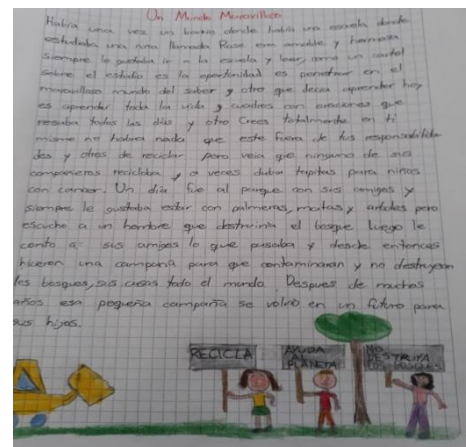 Un Mundo Maravilloso
Había una vez un barrio donde había una escuela donde
estudiaba una niña llamada Rose era amable y hermosa
siempre le gustaba ir a la escuela y leer, como un cartel
sobre el estudio es la oportunidad es penetrar en el
maravilloso mundo del saber y otro que decía aprender hoy
es aprender toda la vida, y cuadros con oraciones que
resaba todos las días y otro Crees totalmente en ti
mismo no habra nada que este fuera de tus responsabilida
des y otros de reciclar pero veia que ninguno de sus
compañeros reciclaba y a veces daba tapitas para niños
con cancer. Un día fue al parque con sus amigos y
siempre le gustaba estar con palmeras, matas y arboles pero
escucho a un hombre que destruiria el bosque luego le
conto a sus amigos lo que pasaba y desde entonces
hicieron una campaña para que contaminaran y no destruyeran
los bosques, sus casas todo el mundo. Despues de muchos
años esa pequeña campaña se volvio en un futuro para
sus hijos.
RECICLA
AYUDA
AL
PLANETA
NO
DESTRUYA
LOS BOSQUES